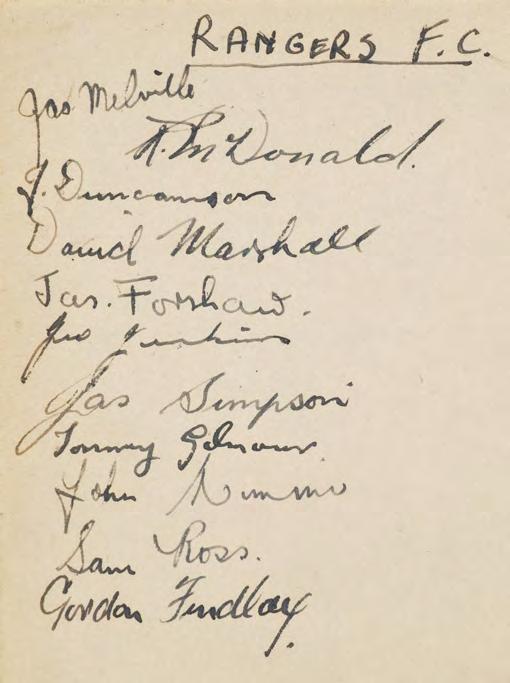 RANGERS F.C.
Jas Melville
A. McDonald.
J. Duncanson
David Marshall
Jas. Forshaw.
Jas Simpson
Tommy Gilmour
John Nimmo
Sam Ross.
Gordon Findlay.